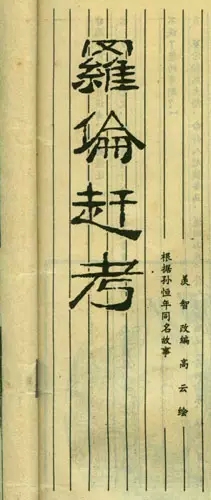 羅倫赶考
根据孙恒年同名故事
羡智改编 高云绘